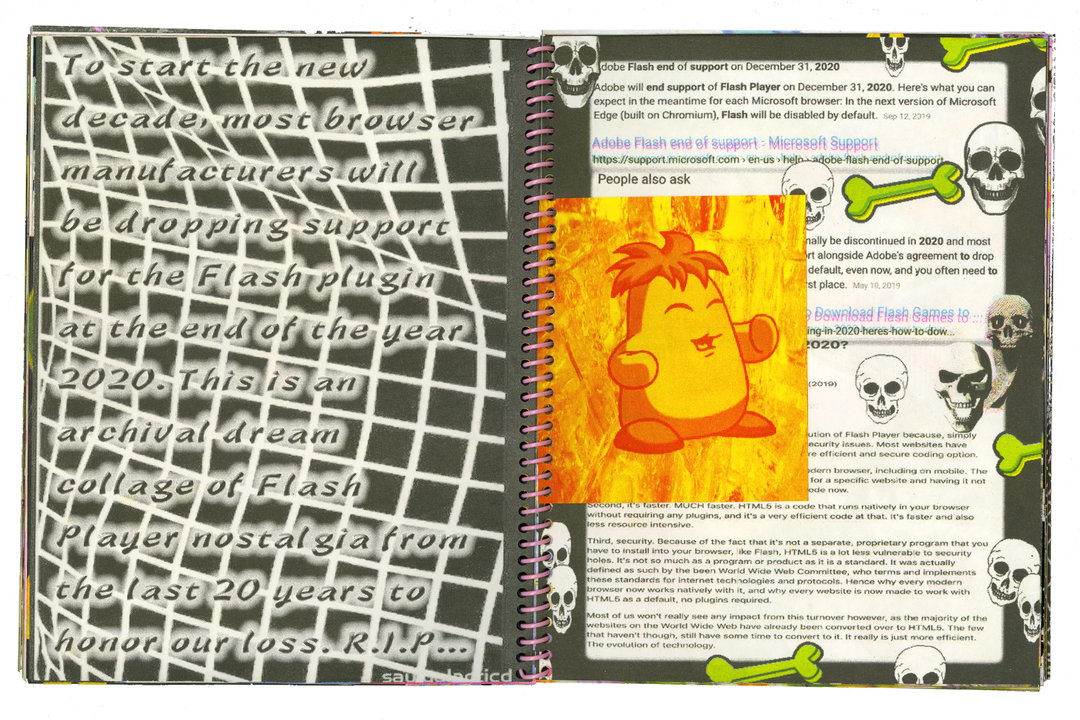 To start the new
decade, most browser
manufacturers will
be dropping support
for the Flash plugin
at the end of the year
2020. This is an
archival dream
collage of Flash
Player nostalgia from
the last 20 years to
honor our loss. R.I.P...
dobe Flash end of support on December 31, 2020
Adobe will end support of Flash Player on December 31, 2020. Here's what you can
expect in the meantime for each Microsoft browser: In the next version of Microsoft
Edge (built on Chromium), Flash will be disabled by default. Sep 12, 2019
Adobe Flash end of support - Microsoft Support
https://support.microsoft.com › en-us › help › adobe-flash-end-of-support
People also ask
nally be discontinued in 2020 and most
rt alongside Adobe's agreement to drop
default, even now, and you often need to
rst place. May 10, 2019
o Download Flash Games to ...
ing-in-2020-heres-how-to-dow...
2020?
(2019)
ution of Flash Player because, simply
ecurity issues. Most websites have
re efficient and secure coding option.
dern browser, including on mobile. The
for a specific website and having it not
ode now.
Second, it's faster. MUCH faster. HTML5 is a code that runs natively in your browser
without requiring any plugins, and it's a very efficient code at that. It's faster and also
less resource intensive.
Third, security. Because of the fact that it's not a separate, proprietary program that you
have to install into your browser, like Flash, HTML5 is a lot less vulnerable to security
holes. It's not so much as a program or product as it is a standard. It was actually
defined as such by the been World Wide Web Committee, who terms and implements
these standards for internet technologies and protocols. Hence why every modern
browser now works natively with it, and why every website is now made to work with
HTML5 as a default, no plugins required.
Most of us won't really see any impact from this turnover however, as the majority of the
websites on the World Wide Web have already been converted over to HTML5. The few
that haven't though, still have some time to convert to it. It really is just more efficient.
The evolution of technology.